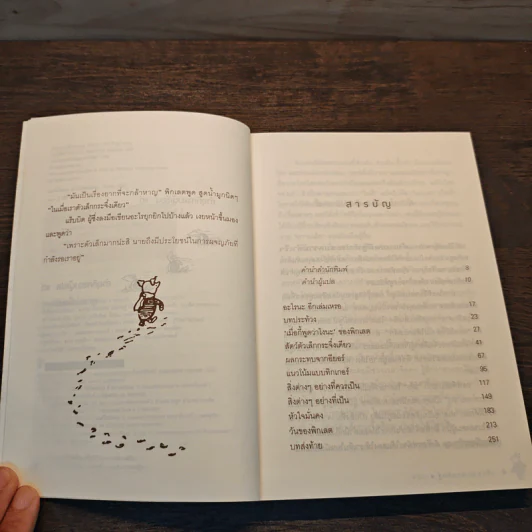 "มันเป็นเรื่องยากที่จะกล้าหาญ" พิกเลตพูด สูดน้ำมูกนิดๆ
"ในเมื่อเราตัวเล็กกระจิ๋งเดียว"
แร็บบิต ผู้ซึ่งลงมือเขียนอะไรยุกยิกไปบ้างแล้ว เงยหน้าขึ้นมอง
และพูดว่า
"เพราะตัวเล็กมากน่ะสิ นายถึงมีประโยชน์ในการผจญภัยที่
กำลังรอเราอยู่"
สารบัญ
คำนำสำนักพิมพ์ 8
คำนำผู้แปล 10
อะไรนะ อีกเล่มเหรอ 17
บทประท้วง 23
'เมื่อกี้พูดว่าไงนะ' ของพิกเลต 27
สัตว์ตัวเล็กกระจิ๋งเดียว 41
ผลกระทบจากอียอร์ 67
แนวโน้มแบบทิกเกอร์ 95
สิ่งต่างๆ อย่างที่ควรเป็น 117
สิ่งต่างๆ อย่างที่เป็น 149
หัวใจมั่นคง 183
วันของพิกเลต 213
บทส่งท้าย 251